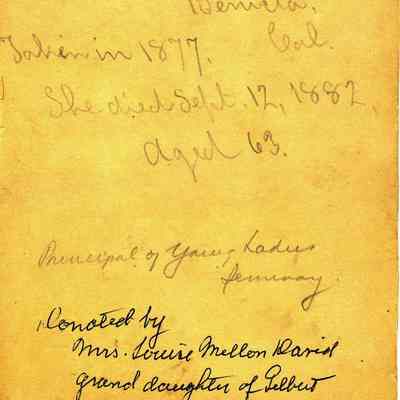 Benicia,
Taken in 1877. Cal.
She died Sept. 12, 1882,
aged 63.
Principal of Young Ladies
Seminary.
Donated by
Mrs. Louise Mellon David
grand daughter of Gilbert